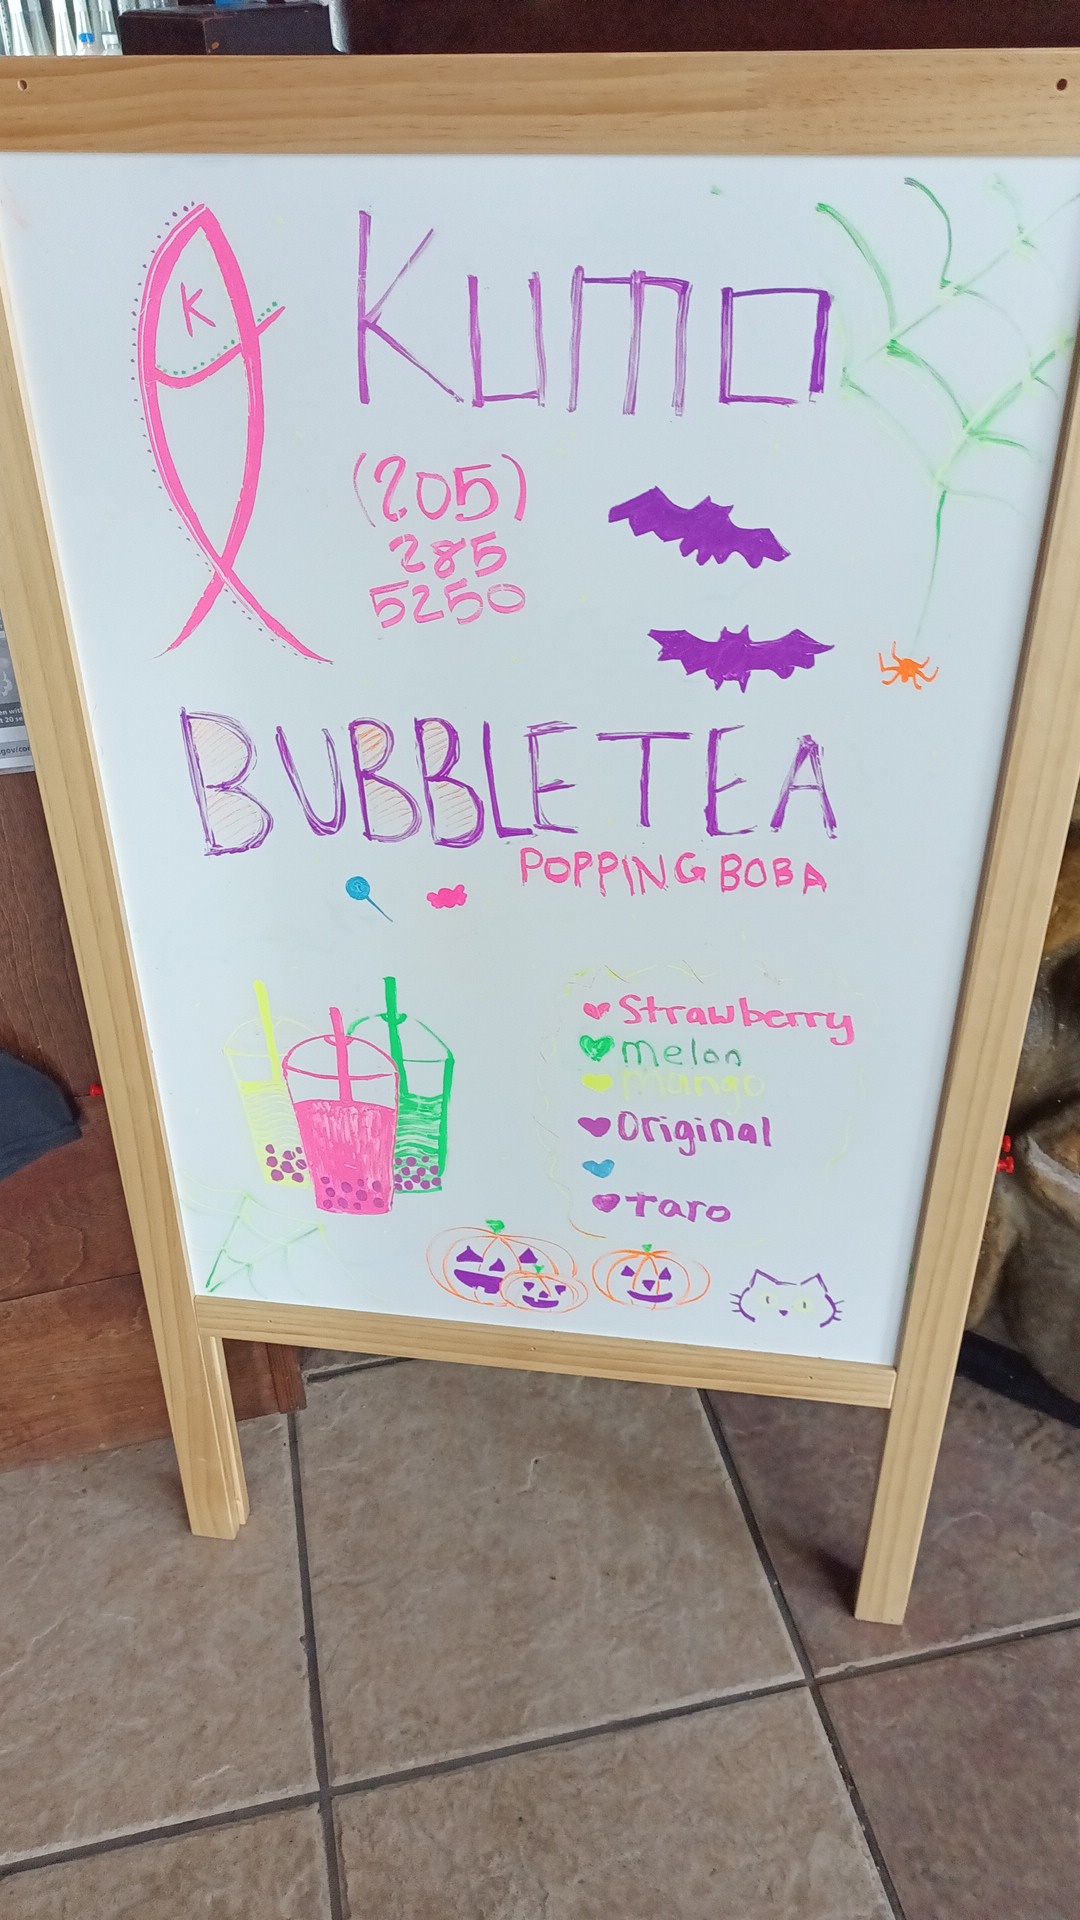 K
Kumo
(205)
285
5250
BUBBLE TEA
POPPING BOBA
Strawberry
melon
mango
Original
taro